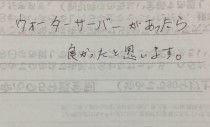 ウォーターサーバーがあったら
良かったと思います。